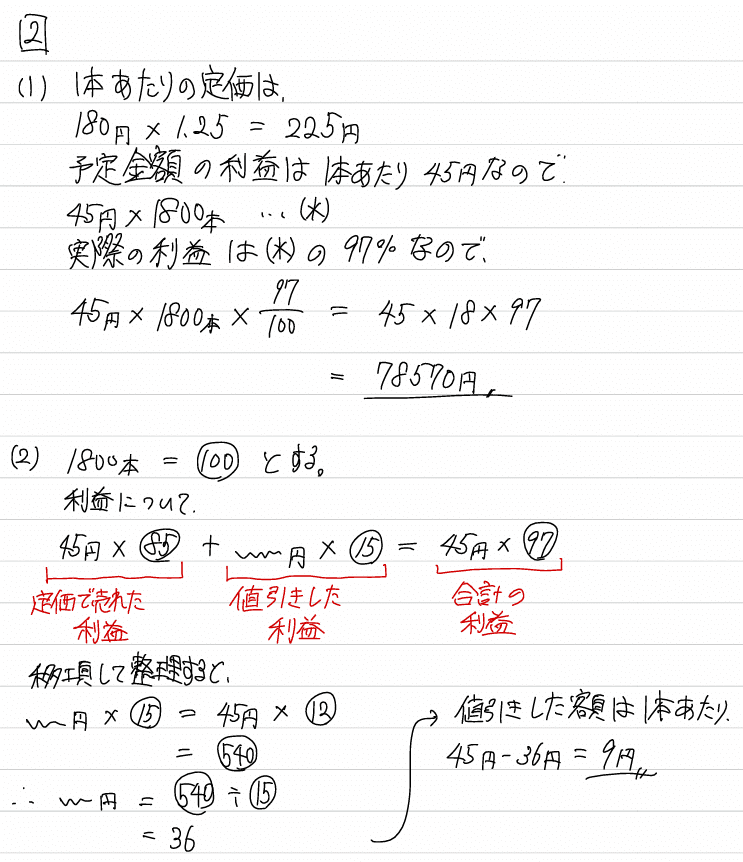 2
(1) 1本あたりの定価は、
180円 × 1.25 = 225円
予定金額の利益は1本あたり45円なので、
45円 × 1800本 … (※)
実際の利益は(※)の97%なので、
45円 × 1800本 × 97/100 = 45 × 18 × 97
= 78570円
(2) 1800本 = 100 とする。
利益について、
45円 × 85 + 〰円 × 15 = 45円 × 97
定価で売れた利益
値引きした利益
合計の利益
移項して整理すると、
〰円 × 15 = 45円 × 12
= 540
∴ 〰円 = 540 ÷ 15
= 36
→ 値引きした額は1本あたり、
45円 - 36円 = 9円